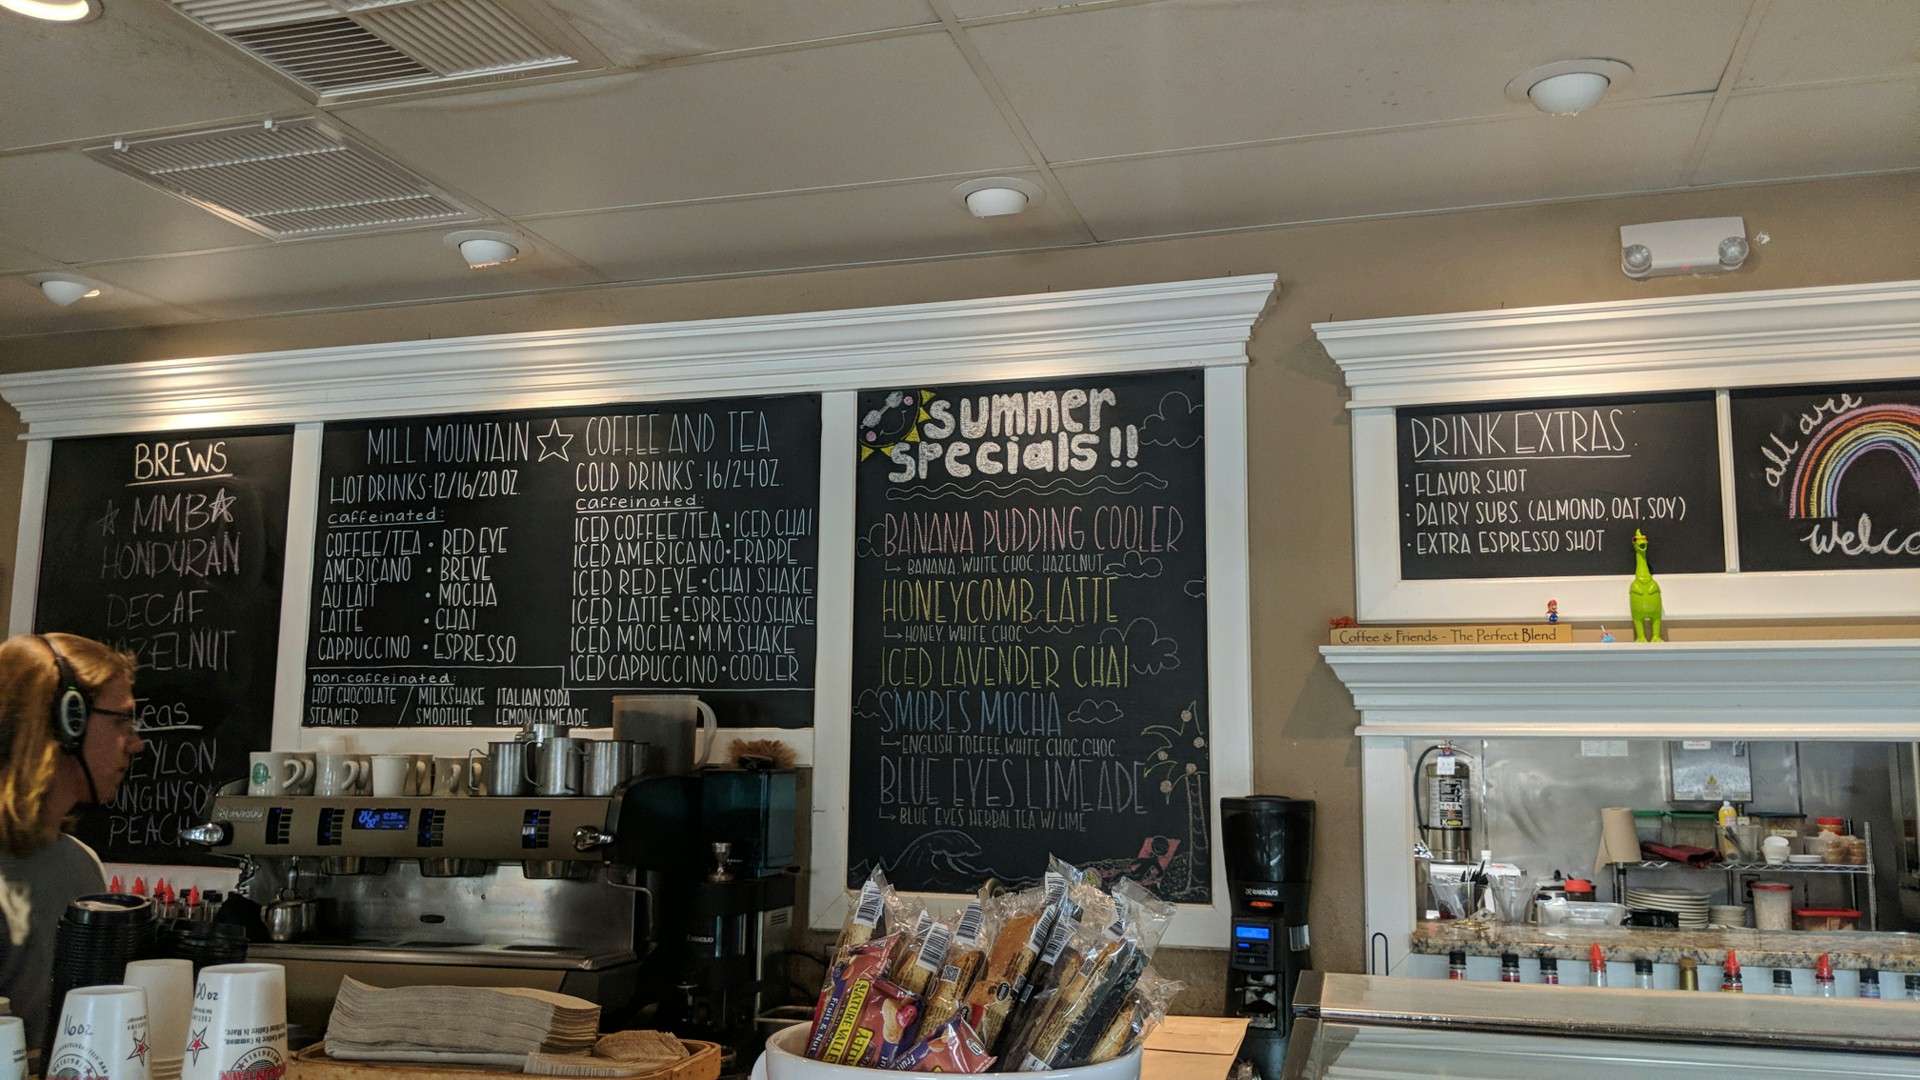 BREWS
MMB
HONDURAN
DECAF
HAZELNUT
Teas
CEYLON
PEACH
MILL MOUNTAIN ☆ COFFEE AND TEA
HOT DRINKS - 12/16/20 OZ.
caffeinated:
COFFEE/TEA • RED EYE
AMERICANO • BREVE
AU LAIT • MOCHA
LATTE • CHAI
CAPPUCCINO • ESPRESSO
non-caffeinated:
HOT CHOCOLATE / MILKSHAKE ITALIAN SODA
STEAMER / SMOOTHIE LEMON/LIMEADE
COLD DRINKS - 16/24 OZ.
caffeinated:
ICED COFFEE/TEA • ICED CHAI
ICED AMERICANO • FRAPPE
ICED RED EYE • CHAI SHAKE
ICED LATTE • ESPRESSO SHAKE
ICED MOCHA • M.M. SHAKE
ICED CAPPUCCINO • COOLER
summer
specials!!
BANANA PUDDING COOLER
BANANA, WHITE CHOC, HAZELNUT
HONEYCOMB LATTE
HONEY, WHITE CHOC
ICED LAVENDER CHAI
S'MORES MOCHA
ENGLISH TOFFEE, WHITE CHOC, CHOC.
BLUE EYES LIMEADE
BLUE EYES HERBAL TEA W/ LIME
DRINK EXTRAS:
• FLAVOR SHOT
• DAIRY SUBS. (ALMOND, OAT, SOY)
• EXTRA ESPRESSO SHOT
all are
Welco
Coffee & Friends - The Perfect Blend
16oz
20oz
NATURE VALLEY
Fruit & Nut
RANCILIO